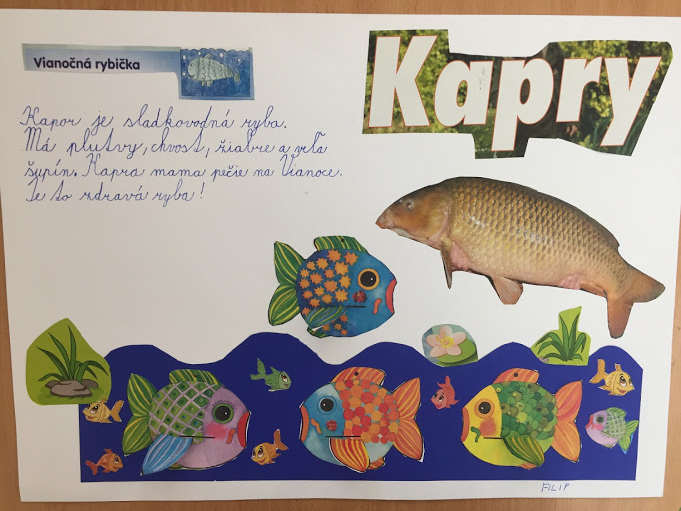 Vianočná rybička
Kapry
Kapor je sladkovodná ryba.
Má plutvy, chvost, žiabre a veľa
šupín. Kapra mama pečie na Vianoce.
Je to zdravá ryba!
FILIP